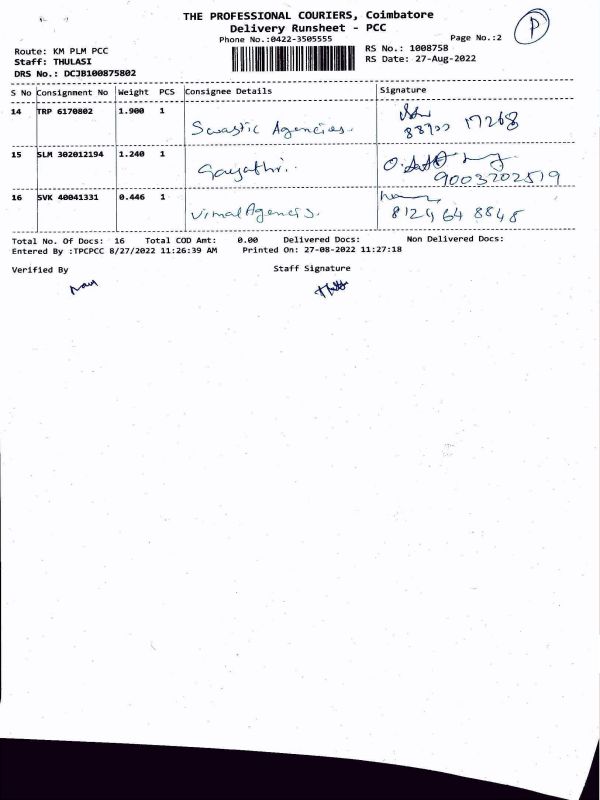 THE PROFESSIONAL COURIERS, Coimbatore
Delivery Runsheet - PCC
Phone No.:0422-3505555
Page No.:2
P
Route: KM PLM PCC
Staff: THULASI
DRS No.: DCJB100875802
RS No.: 1008758
RS Date: 27-Aug-2022
S No Consignment No Weight PCS Consignee Details Signature
14 TRP 6170802 1.900 1
Swastic Agencies. 88700 17268
15 SLM 302012194 1.240 1
Gayathri.. 9003202519
16 SVK 40041331 0.446 1
Vimal Agencies. 8124 64 8848
Total No. Of Docs: 16 Total COD Amt: 0.00 Delivered Docs: Non Delivered Docs:
Entered By :TPCPCC 8/27/2022 11:26:39 AM Printed On: 27-08-2022 11:27:18
Verified By Staff Signature